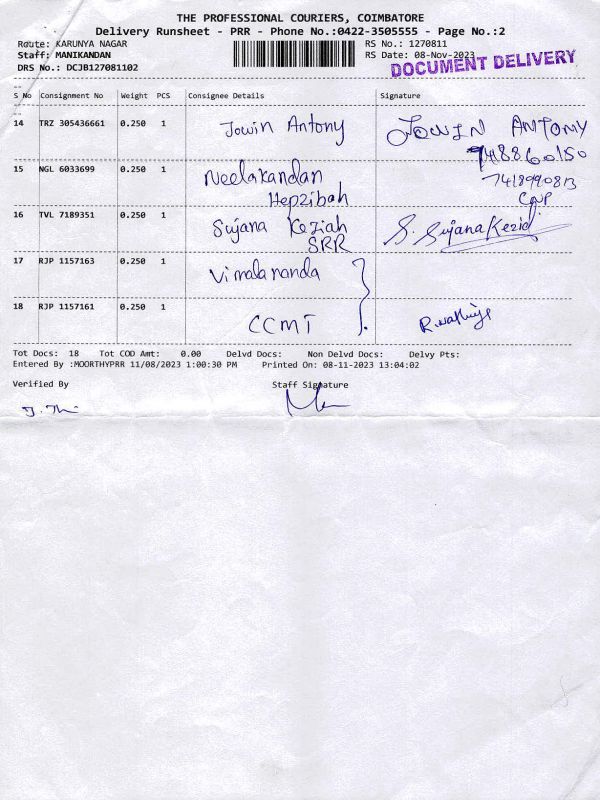 THE PROFESSIONAL COURIERS, COIMBATORE
Delivery Runsheet - PRR - Phone No.:0422-3505555 - Page No.:2
Route: KARUNYA NAGAR RS No.: 1270811
Staff: MANIKANDAN RS Date: 08-Nov-2023
DRS No.: DCJB127081102 DOCUMENT DELIVERY
S No Consignment No Weight PCS Consignee Details Signature
14 TRZ 305436661 0.250 1 Jowin Antony JOWIN ANTONY
7418860150
15 NGL 6033699 0.250 1 Neelakandan
Hepzibah
16 TVL 7189351 0.250 1 Sujana Keziah S. Sujana Kezia
SRR
17 RJP 1157163 0.250 1 Vimalananda
18 RJP 1157161 0.250 1 CCMT
Tot Docs: 18 Tot COD Amt: 0.00 Delvd Docs: Non Delvd Docs: Delvy Pts:
Entered By :MOORTHYPRR 11/08/2023 1:00:30 PM Printed On: 08-11-2023 13:04:02
Verified By Staff Signature